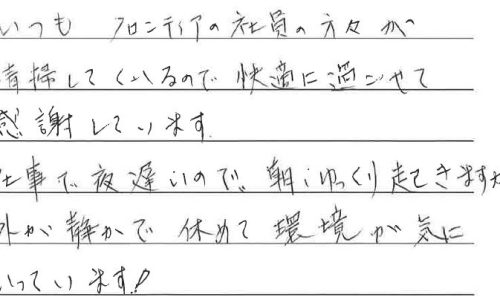 いつも フロンティアの社員の方々が
清掃してくれるので快適に過ごせて
感謝しています.
仕事で夜遅いので、朝ゆっくり起きますが
外が静かで休めて環境が気に
いっています!